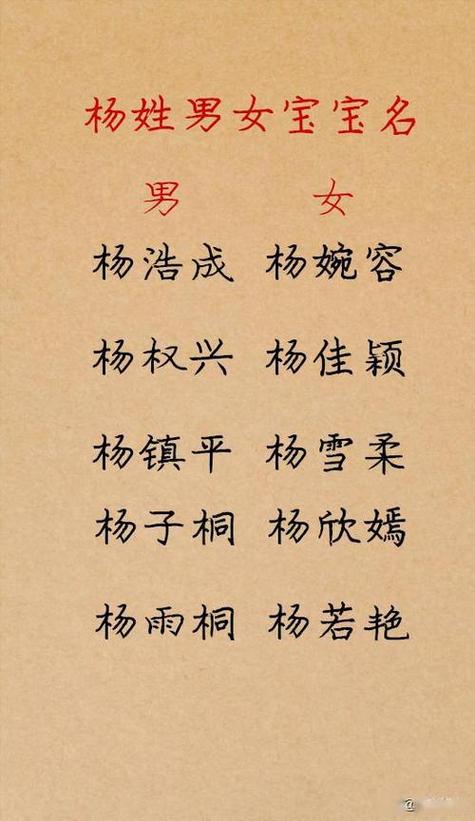 杨姓男女宝宝名
男 女
杨浩成 杨婉容
杨权兴 杨佳颖
杨镇平 杨雪柔
杨子桐 杨欣嫣
杨雨桐 杨若艳
@